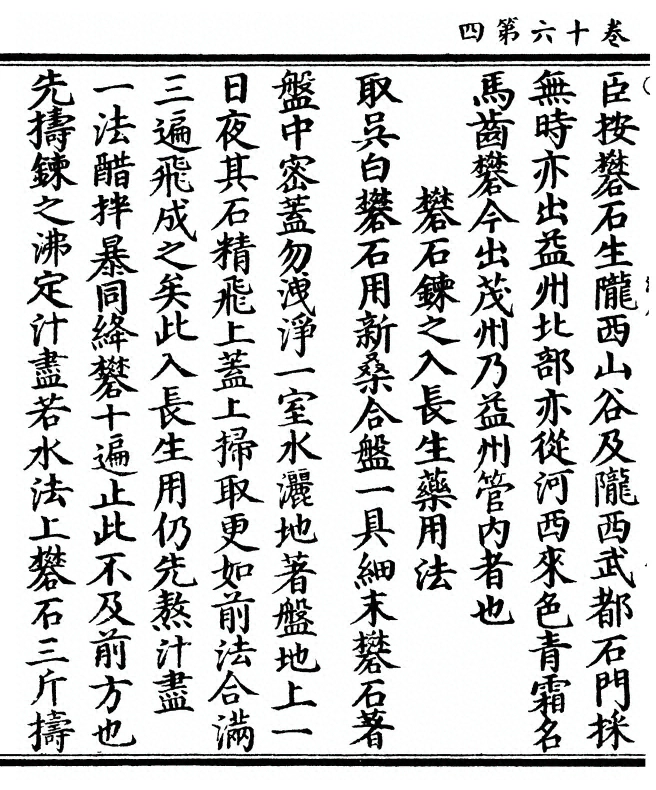 卷十六第四
臣按礬石生隴西山谷及隴西武都石門採
無時亦出益州北部亦從河西來色青霜名
馬齒礬今出茂州乃益州管内者也
礬石鍊之入長生藥用法
取吳白礬石用新桑合盤一具細末礬石著
盤中密蓋勿洩淨一室水灑地著盤地上一
日夜其石精飛上蓋上掃取更如前法合滿
三遍飛成之矣此入長生用仍先熬汁盡
一法醋拌暴同絳礬十遍止此不及前方也
先擣鍊之沸定汁盡若水法上礬石三斤擣